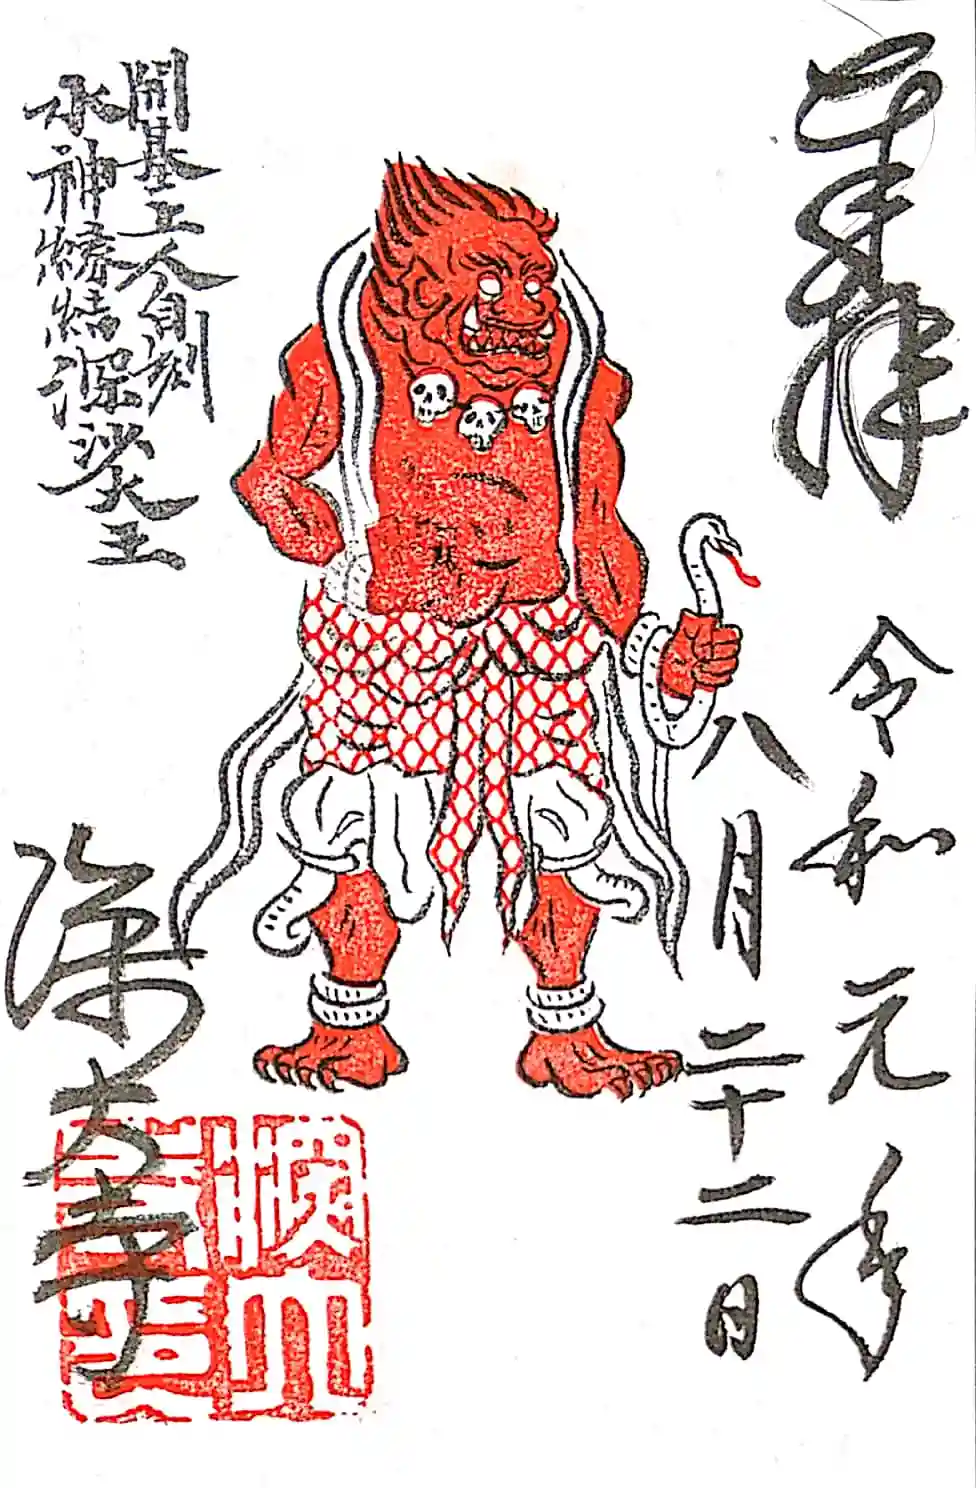 奉拝
令和元年
八月二十二日
開基上人自刻
水神縁結深沙大王
深大寺